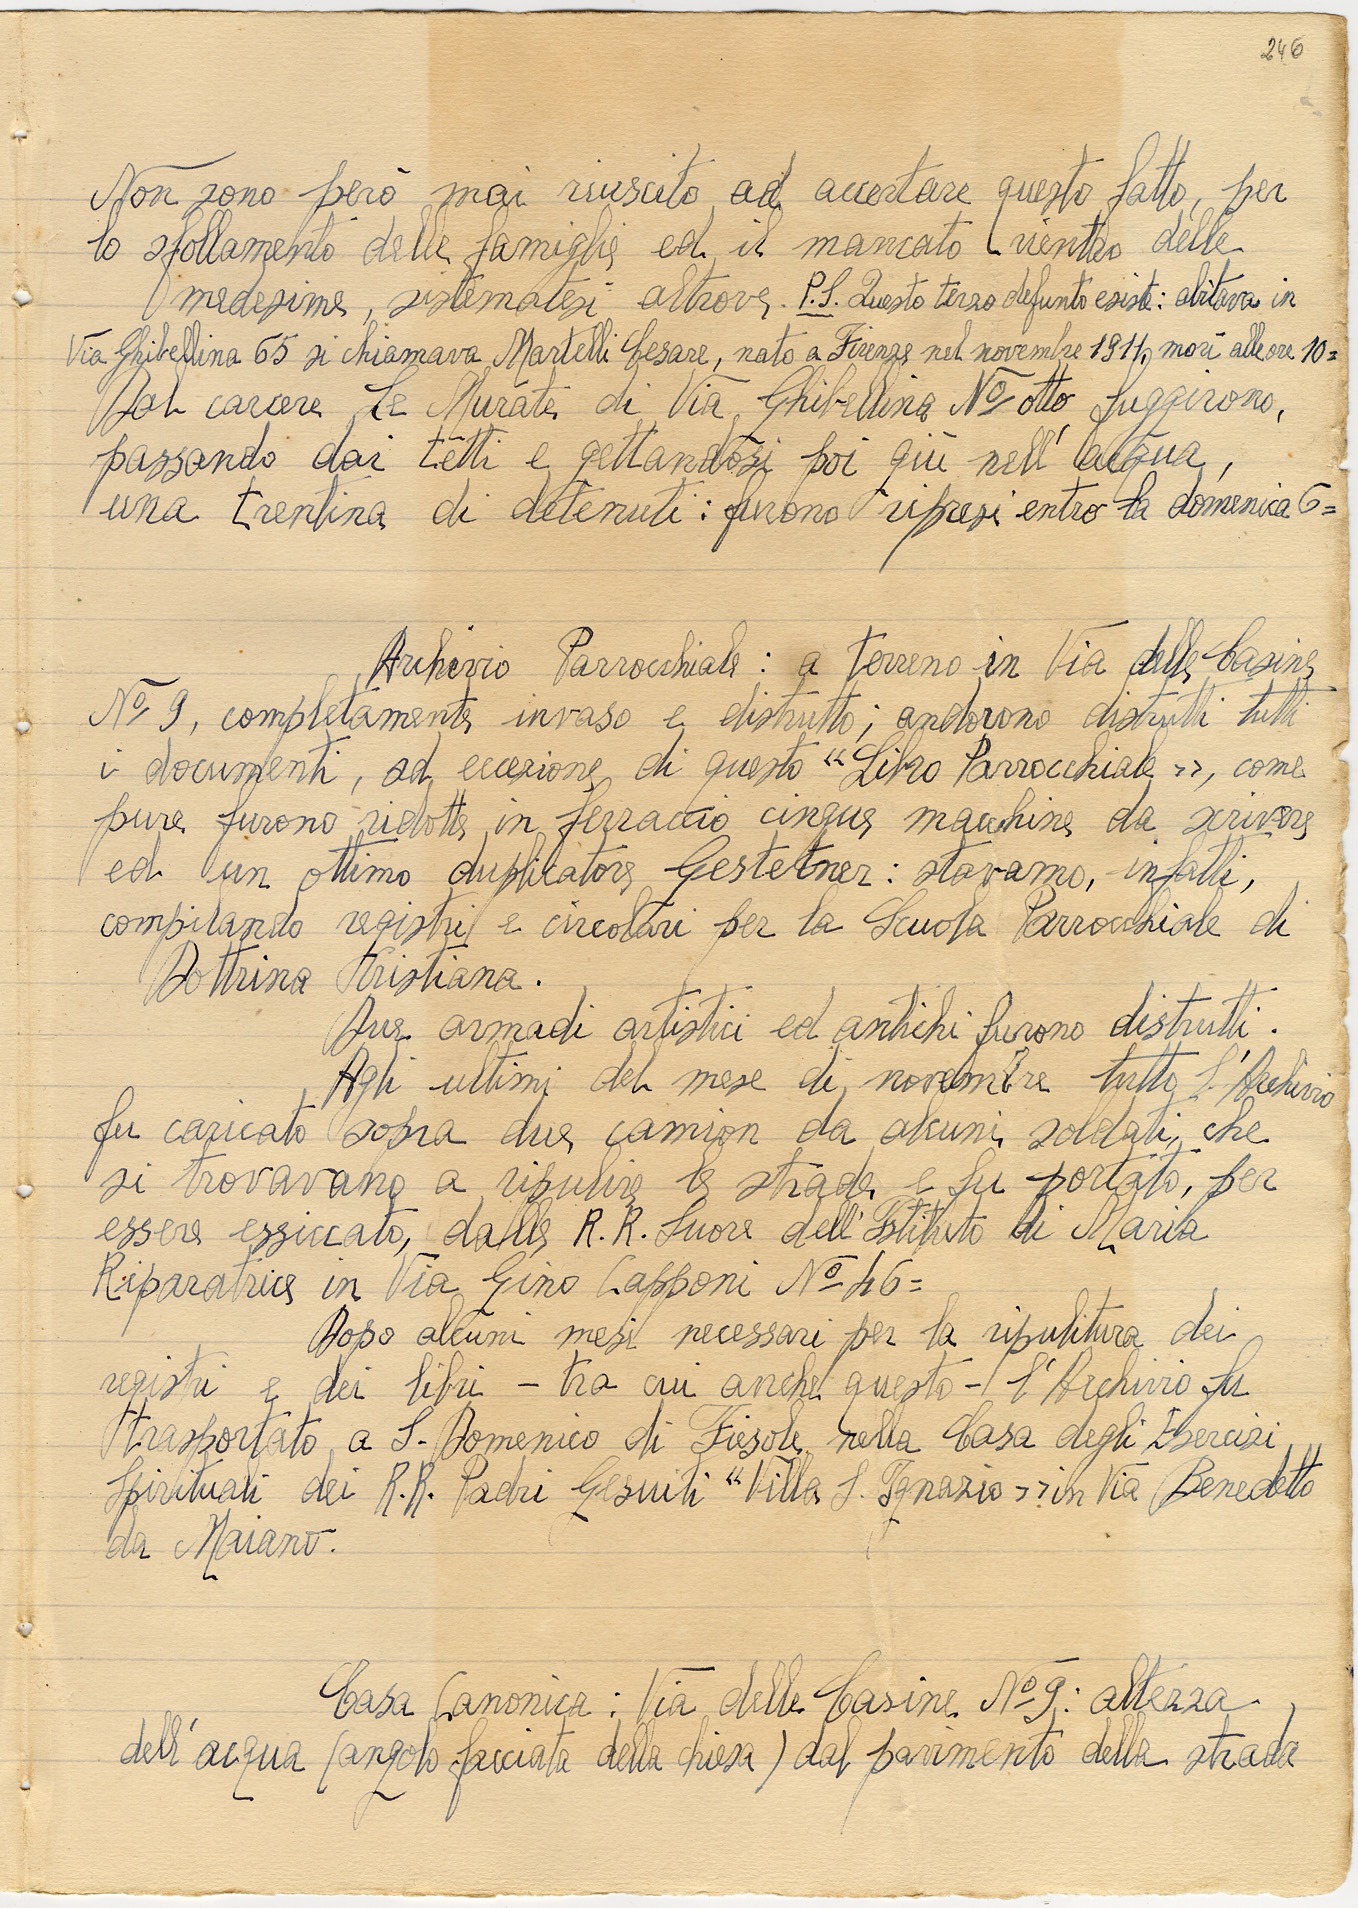 246
Non sono però mai riuscito ad accertare questo fatto, per
lo sfollamento delle famiglie ed il mancato rientro delle
medesime, sistematesi altrove. P.S. Questo terzo defunto esiste: abitava in
Via Ghibellina 65 si chiamava Martelli Cesare, nato a Firenze nel novembre 1911, morì alle ore 10=
Dal carcere Le Murate di Via Ghibellina Nº otto fuggirono,
passando dai tetti e gettandosi poi giù nell'acqua,
una trentina di detenuti: furono ripresi entro la domenica 6=
Archivio Parrocchiale: a terreno in Via delle Casine
Nº 9, completamente invaso e distrutto; andorono distrutti tutti
i documenti, ad eccezione di questo "Libro Parrocchiale", come
pure furono ridotte in ferraccio cinque macchine da scrivere
ed un ottimo duplicatore Gestetner: stavamo, infatti,
compilando registri e circolari per la Scuola Parrocchiale di
Dottrina Cristiana.
Due armadi artistici ed antichi furono distrutti.
Agli ultimi del mese di novembre tutto l'Archivio
fu caricato sopra due camion da alcuni soldati, che
si trovavano a ripulire le strade e fu portato, per
essere essiccato, dalle R.R. Suore dell'Istituto di Maria
Riparatrice in Via Gino Capponi Nº 46=
Dopo alcuni mesi necessari per la ripulitura dei
registri e dei libri - tra cui anche questo - l'Archivio fu
trasportato a S. Domenico di Fiesole nella Casa degli Esercizi
Spirituali dei R.R. Padri Gesuiti "Villa S. Ignazio" in Via Benedetto
da Maiano.
Casa Canonica: Via delle Casine Nº 9: altezza
dell'acqua (angolo facciata della chiesa) dal pavimento della strada